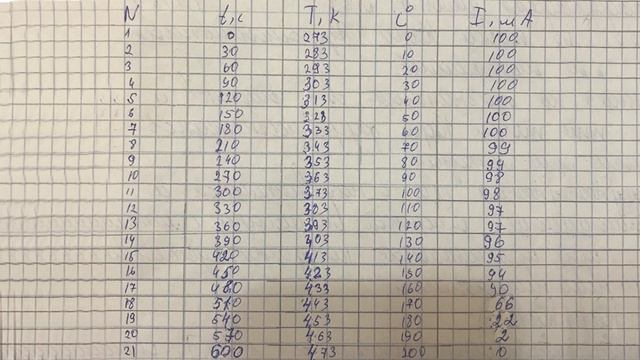 N t, c T, K C° I, мА
1 0 273 0 100
2 30 283 10 100
3 60 293 20 100
4 90 303 30 100
5 120 313 40 100
6 150 323 50 100
7 180 333 60 100
8 210 343 70 99
9 240 353 80 99
10 270 363 90 98
11 300 373 100 98
12 330 383 110 97
13 360 393 120 97
14 390 403 130 96
15 420 413 140 95
16 450 423 150 94
17 480 433 160 90
18 510 443 170 66
19 540 453 180 22
20 570 463 190 2
21 600 473 200 0